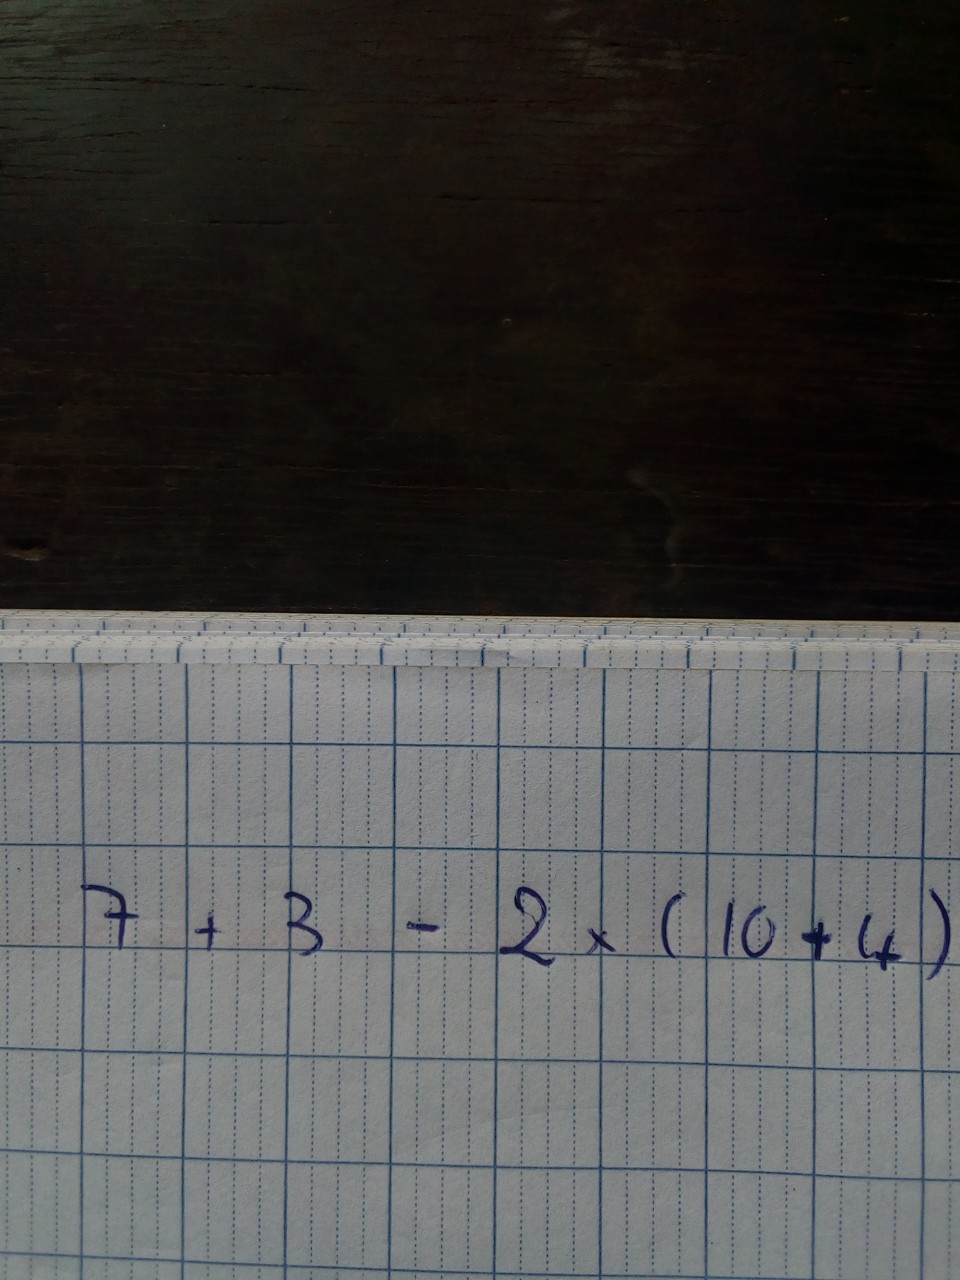 7 + 3 - 2 × (10 + 4)